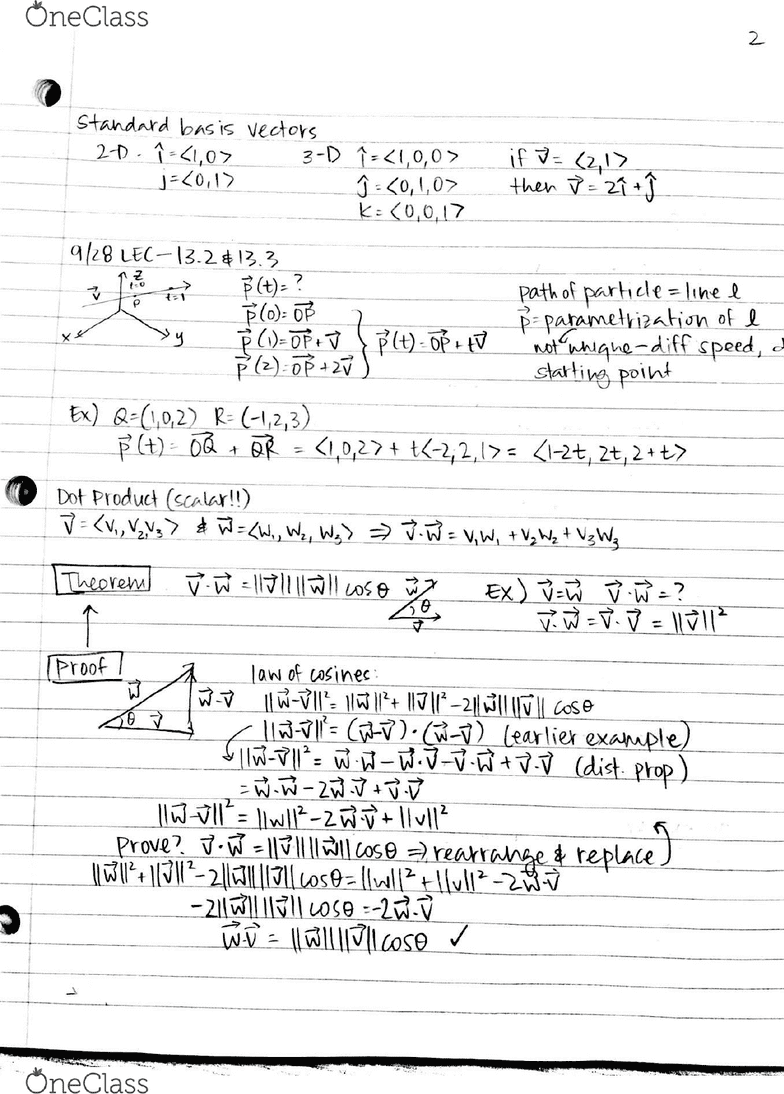 OneClass
2
Standard basis vectors
2-D. î=<1,0> 3-D î=<1,0,0> if v⃗=<2,1>
j=<0,1> ĵ=<0,1,0> then v⃗=2î+ĵ
k=<0,0,1>
9/28 LEC-13.2&13.3
z p⃗(t)=?
t=0
v⃗ t=1 p⃗(0)=OP⃗ path of particle=line l
P p⃗(1)=OP⃗+v⃗ } p⃗(t)=OP⃗+tv⃗ p⃗=parametrization of l
x y p⃗(2)=OP⃗+2v⃗ not unique-diff speed,
starting point
Ex) Q=(1,0,2) R=(-1,2,3)
p⃗(t)=OQ⃗ + QR⃗ = <1,0,2>+t<-2,2,1>= <1-2t, 2t, 2+t>
Dot Product (scalar!!)
v⃗=<v₁,v₂,v₃> & w⃗=<w₁,w₂,w₃> ⇒ v⃗·w⃗=v₁w₁+v₂w₂+v₃w₃
Theorem v⃗·w⃗=||v⃗||||w⃗||cosθ w⃗ θ v⃗ Ex) v⃗=w⃗ v⃗·w⃗=?
v⃗·w⃗=v⃗·v⃗=||v⃗||²
Proof law of cosines:
w⃗ w⃗-v⃗ ||w⃗-v⃗||²=||w⃗||²+||v⃗||²-2||w⃗||||v⃗||cosθ
θ v⃗ ||w⃗-v⃗||²=(w⃗-v⃗)·(w⃗-v⃗) (earlier example)
||w⃗-v⃗||²=w⃗·w⃗-w⃗·v⃗-v⃗·w⃗+v⃗·v⃗ (dist. prop)
=w⃗·w⃗-2w⃗·v⃗+v⃗·v⃗
||w⃗-v⃗||²=||w||²-2w⃗·v⃗+||v||²
Prove? v⃗·w⃗=||v⃗||||w⃗||cosθ ⇒ rearrange & replace
||w⃗||²+||v⃗||²-2||w⃗||||v⃗||cosθ=||w||²+||v||²-2w⃗·v⃗
-2||w⃗||||v⃗||cosθ=-2w⃗·v⃗
w⃗·v⃗=||w⃗||||v⃗||cosθ ✓
OneClass